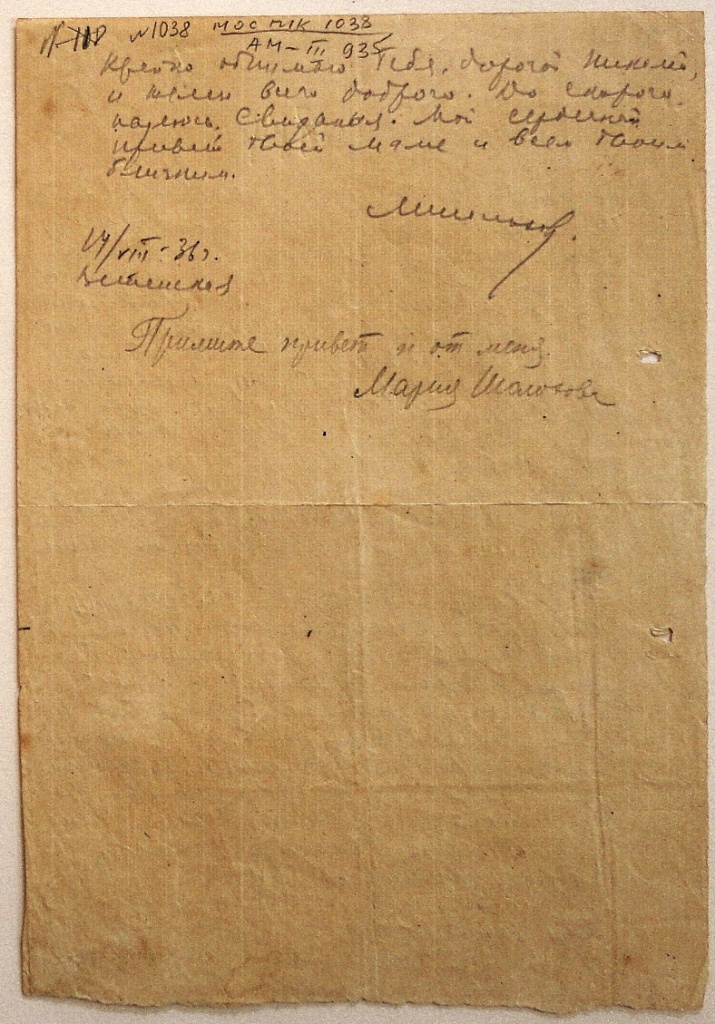 №1038 МОСМIК 1038
АМ-III 935
Крепко обнимаю Тебя, дорогой Николай,
и желаю всего доброго. До скорого,
надеюсь, свиданья. Мой сердечный
привет твоей маме и всем твоим
близким.
17/VIII-36 г.
Вешенская
Примите привет и от меня
Мария Шолохова